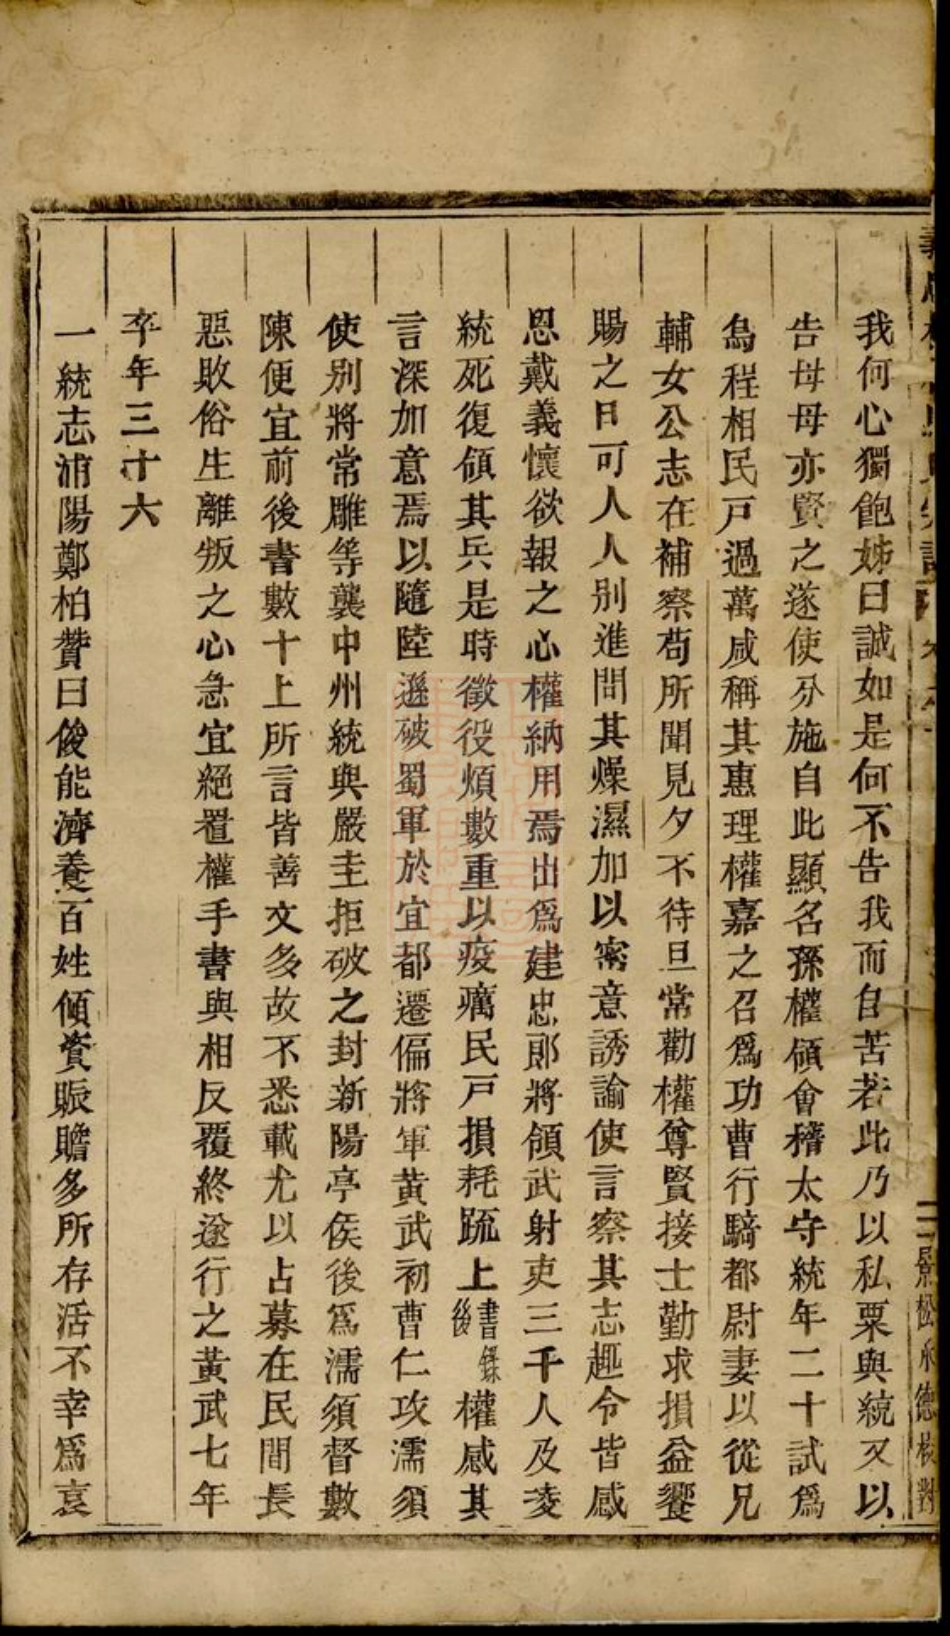 我何心獨飽姊曰誠如是何不告我而自苦若此乃以私粟與統又以
告母母亦賢之遂使分施自此顯名孫權領會稽太守統年二十試爲
烏程相民戶過萬咸稱其惠理權嘉之召爲功曹行騎都尉妻以從兄
輔女公志在補察苟所聞見夕不待旦常勸權尊賢接士勤求損益饗
賜之日可人人別進問其燥濕加以密意誘諭使言察其志趣令皆感
恩戴義懷欲報之心權納用焉出爲建忠郎將領武射吏三千人及凌
統死復領其兵是時徵役煩數重以疫癘民戶損耗䟽上書錄後權感其
言深加意焉以隨陸遜破蜀軍於宜都遷偏將軍黃武初曹仁攻濡須
使別將常雕等襲中州統與嚴圭拒破之封新陽亭侯後爲濡須督數
陳便宜前後書數十上所言皆善文多故不悉載尤以占募在民間長
惡敗俗生離叛之心急宜絕置權手書與相反覆終遂行之黃武七年
卒年三十六
一統志浦陽鄭柏贊曰俊能濟養百姓傾資賑贍多所存活不幸爲袁